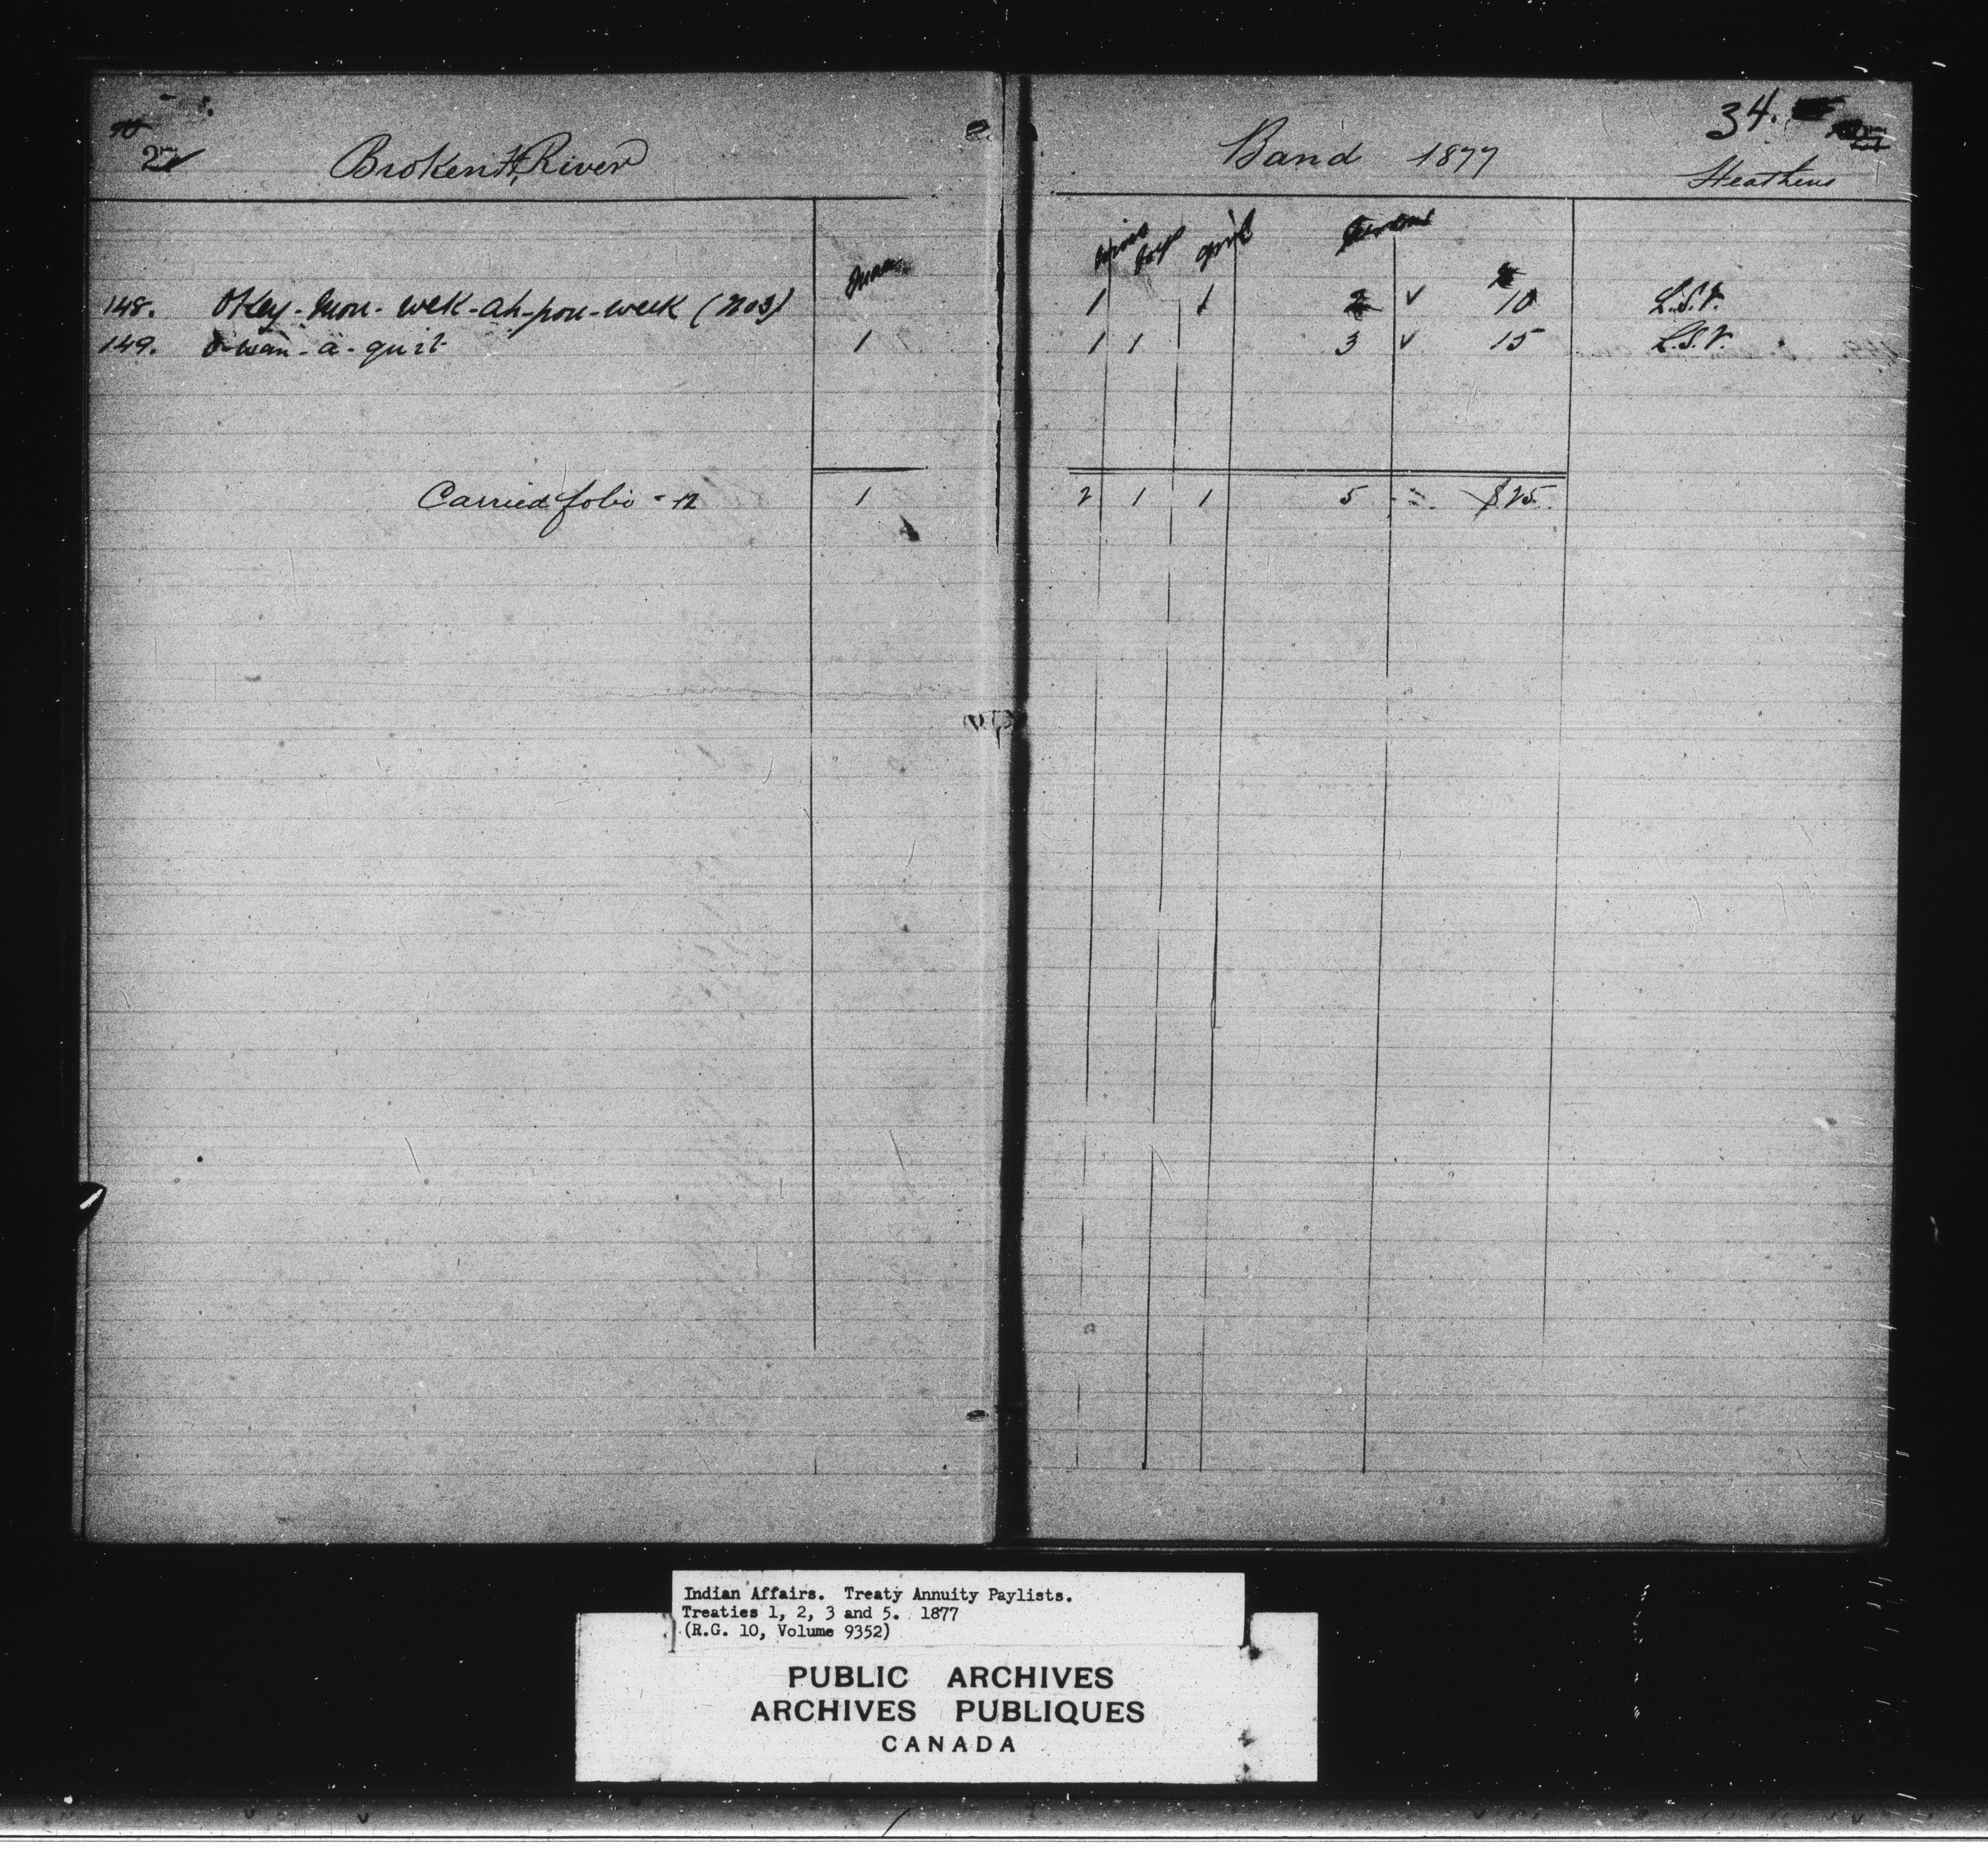 27
Broken Hd River
Band 1877
34.
Heathens
Men
boys girls
148. Okey-mou-wek-ah-pou-week (No3) 1 1 2 ✓ 10 L.S.V.
149. O-wan-a-quit 1 1 1 3 ✓ 15 L.S.V.
Carried folio - 12 1 2 1 1 5 $25.
Indian Affairs. Treaty Annuity Paylists.
Treaties 1, 2, 3 and 5. 1877
(R.G. 10, Volume 9352)
PUBLIC ARCHIVES
ARCHIVES PUBLIQUES
CANADA